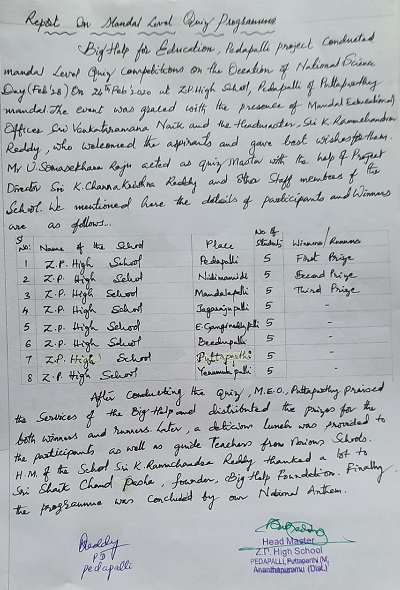 Report On Mandal Level Quiz Programme
Big Help for Education, Pedapalli project conducted
mandal Level Quiz Competitions on the Occation of National Science
Day (Feb'28) On 24th Feb'2020 at Z.P. High School, Pedapalli of Puttaparthy
mandal. The event was graced with the presence of Mandal Educational
Officer Sri Venkataramana Naik and the Headmaster, Sri K. Ramachandra
Reddy, who welcomed the aspirants and gave best wishes for them.
Mr U. Somasekhara Raju acted as quiz Master with the help of Project
Director Sri K. Channa Krishna Reddy and other Staff members of the
School. We mentioned here the details of participants and Winners
are as follows...
Sl No: Name of the School Place No of Students Winners/Runners
1 Z.P. High School Pedapalli 5 First Prize
2 Z.P. High School Nidimamidi 5 Second Prize
3 Z.P. High School Mandalapalli 5 Third Prize
4 Z.P. High School Jagarajupalli 5 -
5 Z.P. High School 5 -
6 Z.P. High School Beedupalli 5 -
7 Z.P. High School Puttaparthi 5 -
8 Z.P. High School Yenumulapalli 5 -
After Conducting the Quiz, M.E.O, Puttaparthy praised
the Services of the Big Help and distributed the prizes for the
both winners and runners. Later, a delicious lunch was provided to
the participants as well as guide Teachers from various Schools.
H.M. of the School Sri K. Ramachandra Reddy thanked a lot to
Sri Shaik Chand Pasha, founder, Big Help Foundation. Finally
the programme was concluded by our National Anthem.
Reddy
P.D
pedapalli
Head Master
Z.P. High School
PEDAPALLI, Puttaparthi (M),
Ananthapuramu (Dist.)